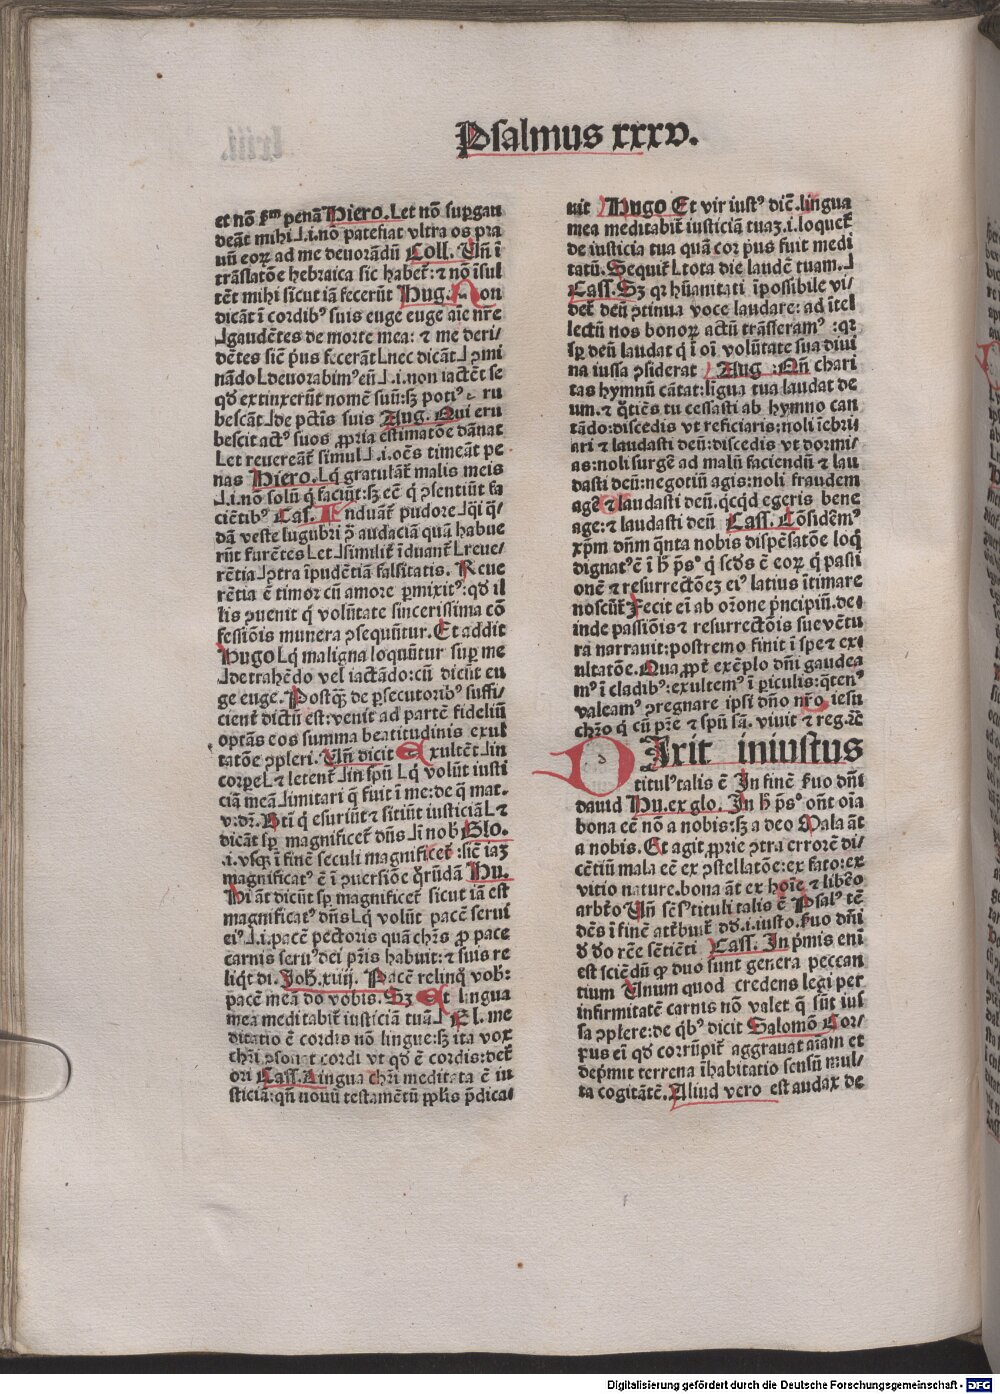 Psalmus xxxv.
et nō ẜm penā Hiero. Let nō supgau
deāt mihi⅃.i.nō patefiat vltra os pra
uū eoꝝ ad me deuorādū Coll. Vñ ī
trāslatōe hebraica sic habet̄:⁊ nō īsul
tēt mihi sicut iā fecerūt Hug. Non
dicāt ī cordib⁹ suis euge euge aīe nr̄e
⅃gaudētes de morte mea: ⁊ me deri⸗
dētes siē p̄us fecerāt Lnec dicāt⅃ ꝓmi
nādo Ldeuorabim⁹ eū⅃.i.non iactēt se
qd̄ extinxerūt nomē suū:sꝫ poti⁹ e ru
bescāt ⅃de pctīs suis Aug. Qui eru
bescit act⁹ suos ꝓpria estimatōe dānat
Let reuereāt̄ simul⅃.i.oēs timeāt pe
nas Hiero. Lq̄ gratulāt̄ malis meis
⅃.i.nō solū q̄ faciūt:sꝫ eē q̄ ꝯsentiūt fa
ciētib⁹ Cas. Induāt̄ pudore⅃qi q̄⸗
dā veste lugubri p̄ audaciā quā habue
rūt furētes Let⅃similit̄ īduant̄ Lreue⸗
rētia⅃ꝯtra īpudētiā falsitatis. Reue
rētia ē timor cū amore ꝑmixt⁹:qd̄ il
lis ꝓuenit q̄ volūtate sincerissima cō
fessiōis munera ꝯsequūtur. Et addit
Hugo Lq̄ maligna loquūtur suꝑ me
⅃detrahēdo vel iactādo:cū dicūt eu
ge euge. Postqꝫ de ꝑsecutorib⁹ suffi⸗
cient̄ dictū est:venit ad partē fideliū
optās eos summa beatitudinis exul
tatōe ꝯpleri. Vñ dicit Exultēt⅃in
corpeL⁊ letent̄⅃in spū Lq̄ volūt iusti
ciā meā⅃imitari q̄ fuit ī me:de q̄ mat.
v.dr̄. Bti q̄ esuriūt ⁊ sitiūt iusticiāL⁊
dicāt sp̄ magnificet̄ dn̄s⅃ī nob Glo.
.i.vsqꝫ ī finē seculi magnificet̄:siē iaꝫ
magnificat⁹ ē ī ꝯuersiōe q̄rūdā Hu.
Hi āt dicūt sp̄ magnificet̄ sicut iā est
magnificat⁹ dn̄s Lq̄ volūt pacē serui
ei⁹⅃.i.pacē pectoris quā chr̄s ꝓ pace
carnis seru⁹ dei pr̄is habuit:⁊ suis re
liq̄t di. Joh. xiiij. Pacē relinq̄ vob:
pacē meā do vobis. Sꝫ Et lingua
mea meditabit̄ iusticiā tuā⅃ El. me
ditatio ē cordis nō lingue:sꝫ ita vox
chr̄i ꝯsonat cordi vt qd̄ ē cordis:det̄
ori Cass. Lingua chr̄i meditata ē iu
sticiā:qn̄ nouū testamētū ppl̄is p̄dica⸗
uit Hugo Et vir iust⁹ dicē.lingua
mea meditabit̄ iusticiā tuaꝫ.i.loquet̄
de iusticia tua quā cor p̄us fuit medi
tatū. Sequit̄ Ltota die laudē tuam.⅃
Cass. Sꝫ qꝛ hūanitati īpossibile vi⸗
det̄ deū ꝯtinua voce laudare: ad itel
lectū nos bonoꝝ actū trāsferam⁹ :qꝛ
sp̄ deū laudat q̄ ī oī volūtate sua diui
na iussa ꝯsiderat Aug. Qn̄ chari
tas hymnū cātat:ligua tua laudat de
um.⁊ q̄tiēs tu cessasti ab hymno can
tādo:discedis vt reficiaris:noli īebri
ari ⁊ laudasti deū:discedis vt dormi⸗
as:noli surgē ad malū faciendū ⁊ lau
dasti deū:negotiū agis:noli fraudem
agē ⁊ laudasti deū.qcqd egeris bene
age:⁊ laudasti deū Cass. Cōsidēm⁹
xp̄m dn̄m q̄nta nobis dispēsatōe loq̄
dignat⁹ ē ī h̄ p̄s⁹ q̄ scd̄s ē eoꝝ q̄ passi
onē ⁊ resurrectōeꝫ ei⁹ latius ītimare
noscūt̄ Fecit ei ab or̄one p̄ncipiū.de⸗
inde passiōis ⁊ resurrectōis sue vētu
ra narrauit:postremo finit ī spe ⁊ ex⸗
ultatōe. Qua ꝓpt̄ exēplo dn̄i gaudea
m⁹ ī cladib⁹:exultem⁹ ī ꝑiculis:q̄ten⁹
valeam⁹ ꝯregnare ipsi dn̄o nr̄o iesu
chr̄o q̄ cū pr̄e ⁊ spū sā. viuit ⁊ reg.ꝛc̄
DIxit iniustus
titul⁹ talis ē In finē ẜuo dn̄i
dauid Hu.ex glo. In h̄ p̄s⁰ oñt oīa
bona eē nō a nobis:sꝫ a deo Mala āt
a nobis. Et agit ꝓprie ꝯtra errorē di⸗
cētiū mala eē ex ꝯstellatōe:ex fato:ex
vitio nature.bona āt ex hoīe ⁊ libēo
arbt̄o Vñ sēs⁹ tituli talis ē Psal⁹ tē
dēs ī finē attbuit̄ dd̄.i.iusto.ẜuo dn̄i
d̄ do rēe sētiēti Cass. In p̄mis eni
est sciēdū ꝙ duo sunt genera peccan
tium Vnum quod credens legi per
infirmitatē carnis nō valet q̄ sūt ius
sa ꝯplere:de qb⁹ dicit Salomō Cor⸗
pus ei qd̄ corrūpit̄ aggrauat aīam et
dep̄mit terrena īhabitatio sensū mul⸗
ta cogitātē. Aliud vero est audax de
Digitalisierung gefördert durch die Deutsche Forschungsgemeinschaft - DFG